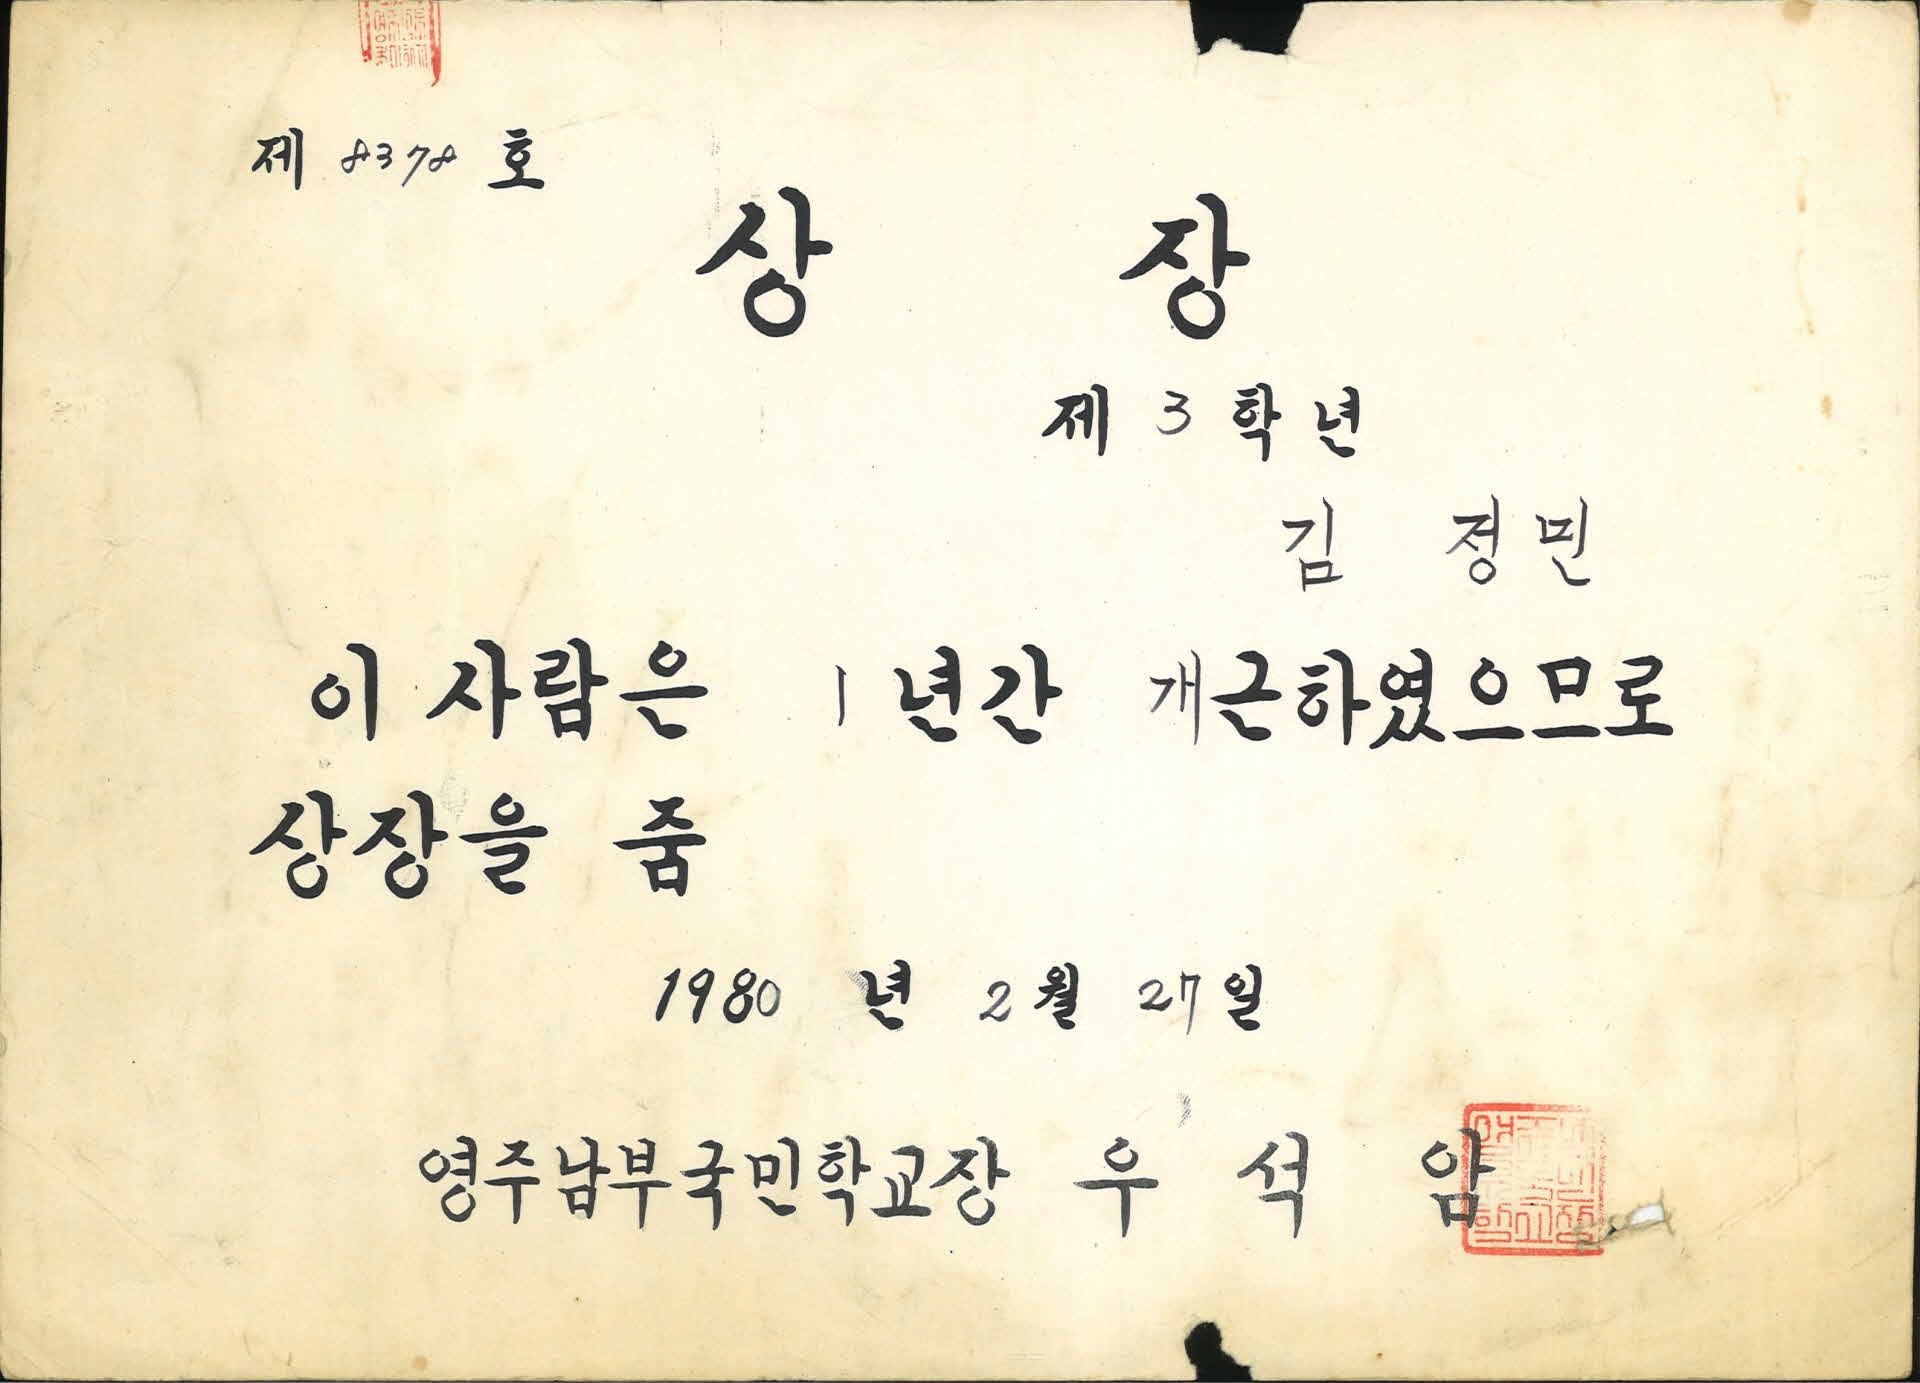 제 8378 호
상 장
제 3 학년
김 정민
이 사람은 1 년간 개근하였으므로
상장을 줌
1980 년 2 월 27 일
영주남부국민학교장 우 석 암